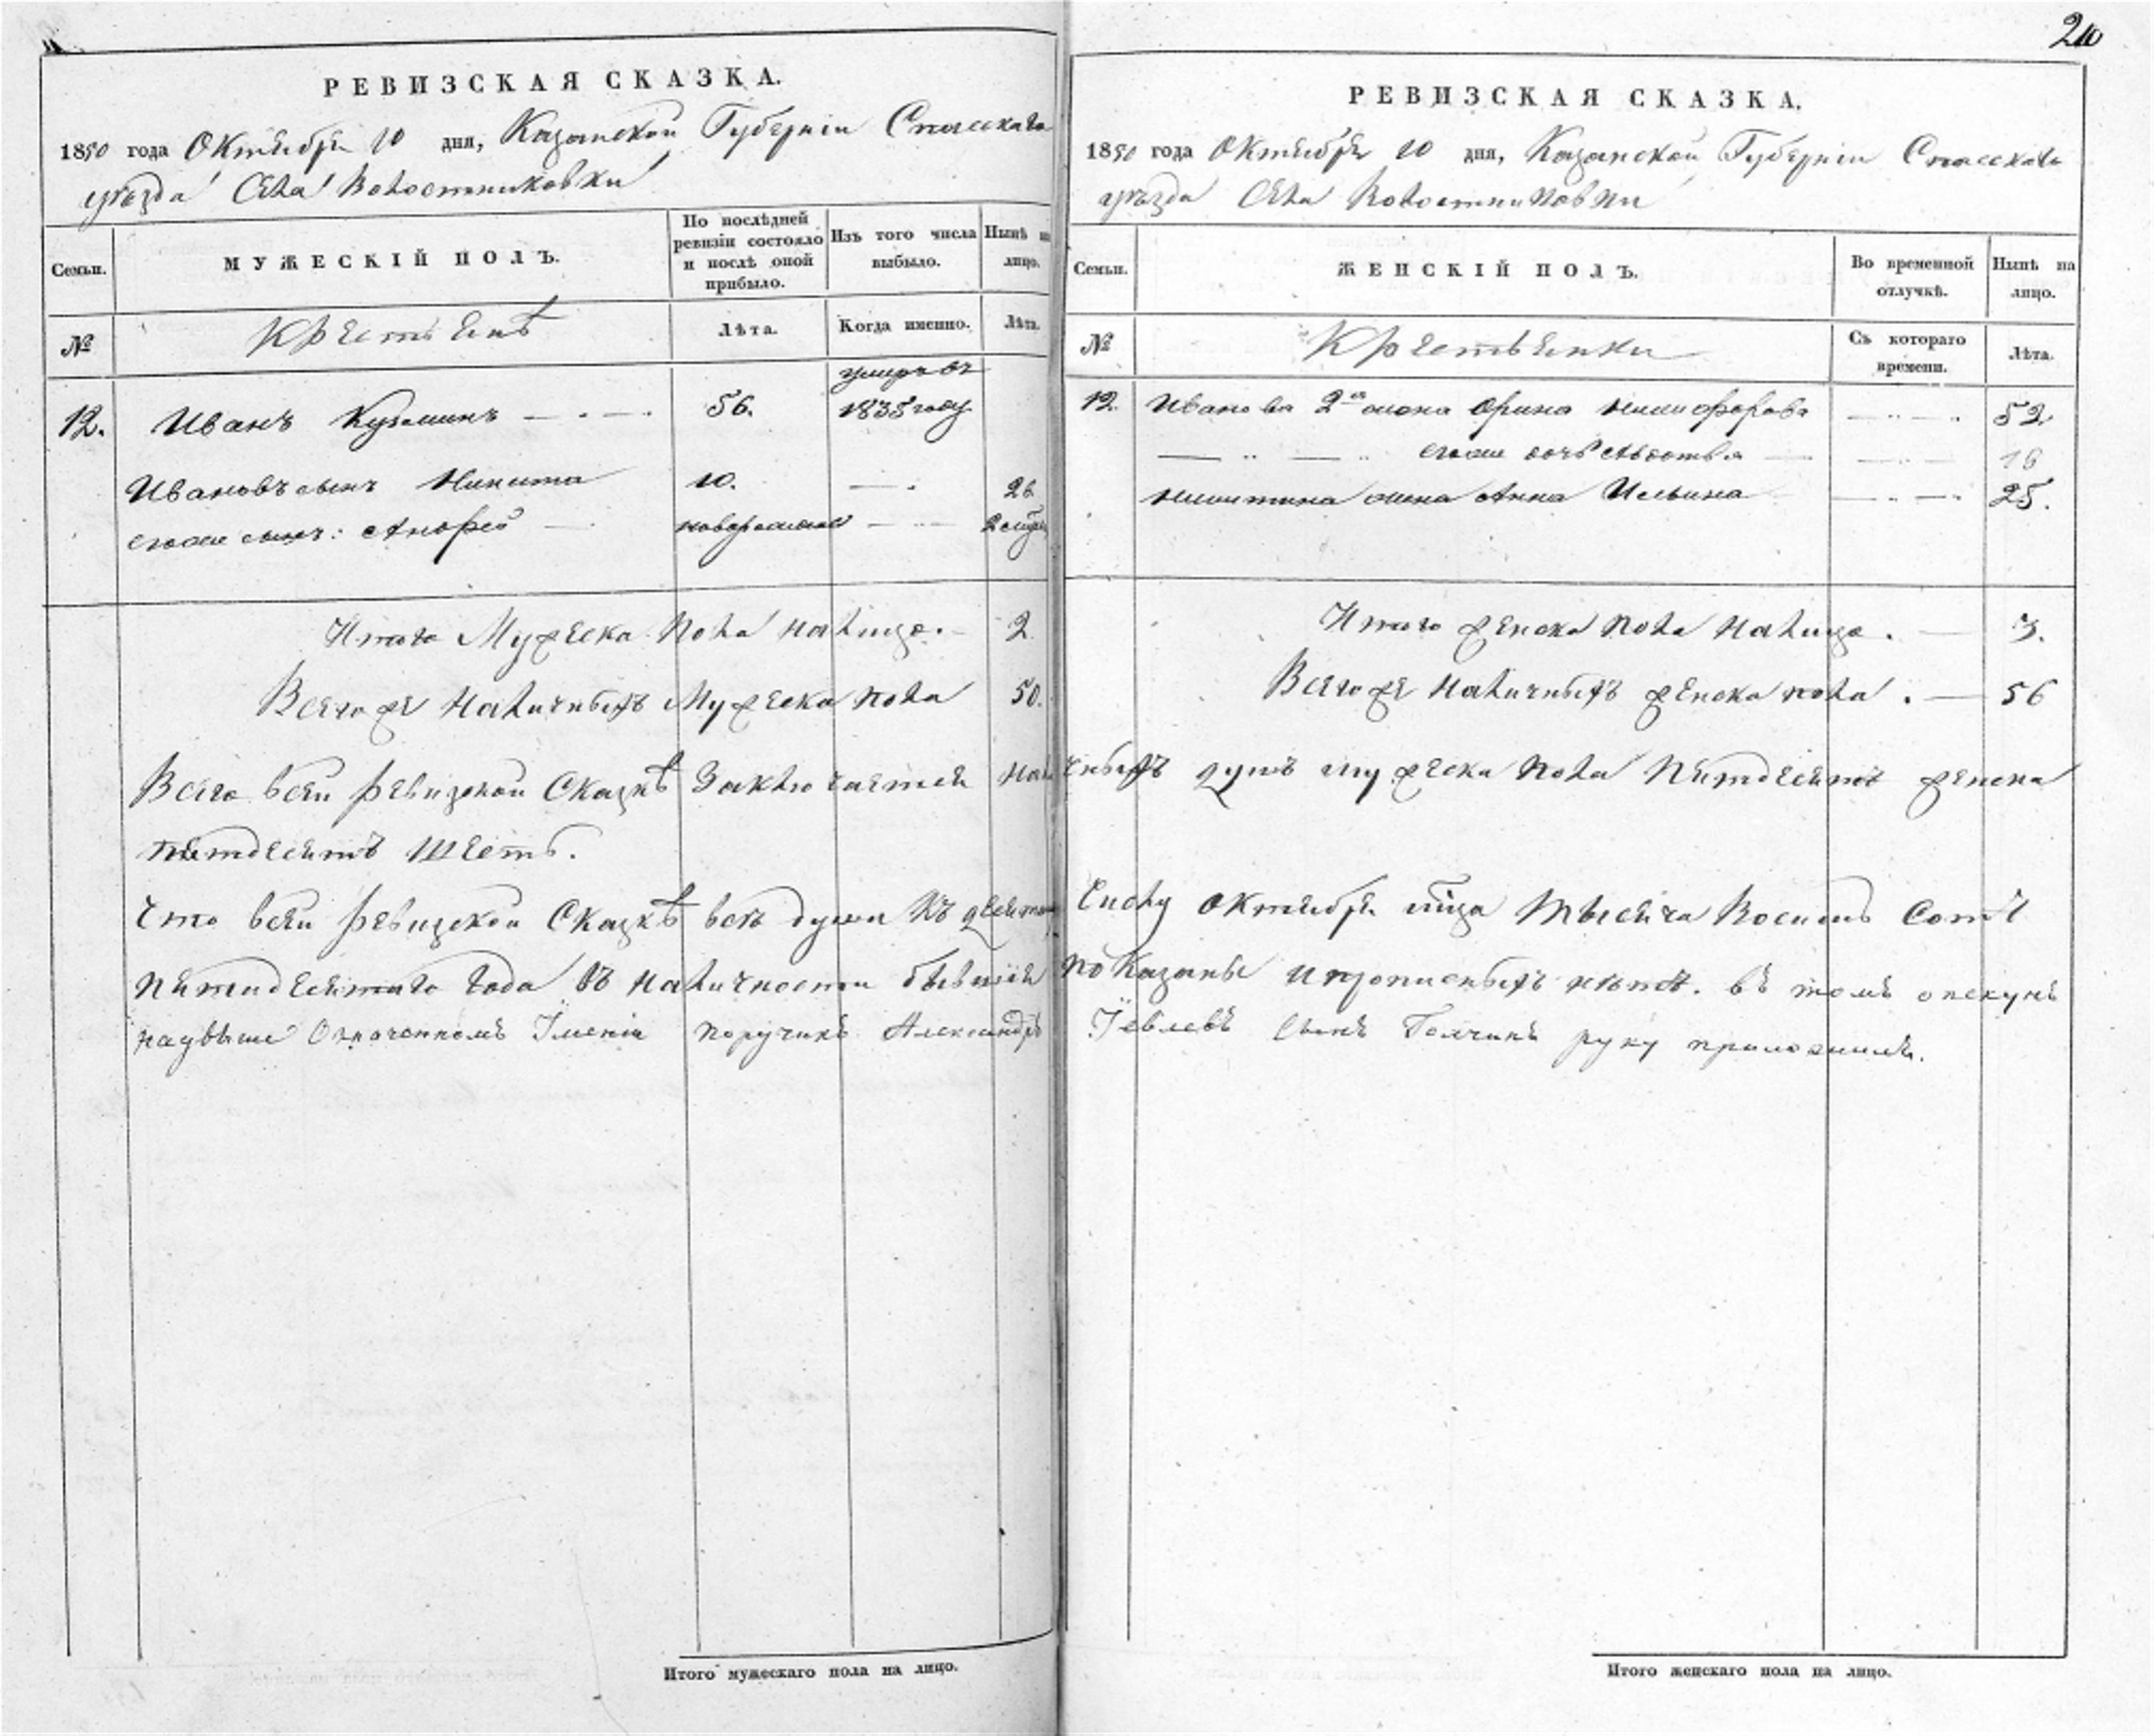 РЕВИЗСКАЯ СКАЗКА.
1850 года Октября 10 дня, Казанской Губернии Спасскаго
уѣзда Села Волостниковки
Семьи.
МУЖЕСКІЙ ПОЛЪ.
По послѣдней ревизіи состояло и послѣ оной прибыло.
Изъ того числа выбыло.
Нынѣ на лицо.
№
Крестьянѣ
Лѣта.
Когда именно.
Лѣта.
12. Иванъ Кузминъ — . — . 56. умеръ въ 1835 году
Ивановъ сынъ Никита 10. — . 26
егоже сынъ: Андрей — новорожден — .. —
Итого Мужеска Пола налицо. — 2.
Всегоже Наличныхъ Мужеска пола 50.
РЕВИЗСКАЯ СКАЗКА.
1850 года Октября 10 дня, Казанской Губерніи Спасскаго
уѣзда Села Волостниковки
Семьи.
ЖЕНСКІЙ ПОЛЪ.
Во временной отлучкѣ.
Нынѣ на лицо.
№
Крестьянки
Съ котораго времени.
Лѣта.
12. Иванова 2я жена Орина Никифорова — .. — . 52.
— .. — .. егоже дочь Авдотья — — .. — 16
Никитина жена Анна Ильина — .. — . 25.
Итого женска Пола Налицо . — 3.
Всегоже Наличныхъ женска пола . — 56
Всего всей ревизской Сказкѣ Заключается наличныхъ душъ мужеска Пола Пятдесятъ женска
пятдесятъ Шесть.
Что всей ревизской Сказкѣ всѣ души Къ десятому Числу Октября мца Тысяча Восимь Сотъ
пятидесятаго Года въ наличности бывшія показаны и прописныхъ нѣтъ. въ томъ опекунъ
надвыше Означенномъ Имѣніи поручикъ Александръ сынъ руку приложилъ.
Итого мужескаго пола на лицо.
Итого женскаго пола на лицо.